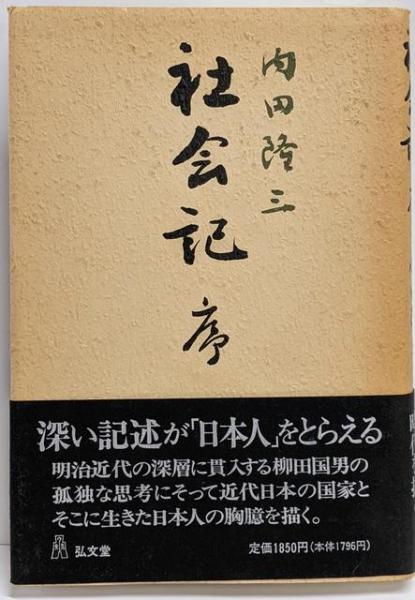 内田隆三
社会記 序
深い記述が「日本人」をとらえる
明治近代の深層に貫入する柳田国男の
孤独な思考にそって近代日本の国家と
そこに生きた日本人の胸臆を描く。
弘文堂
定価1850円(本体1796円)